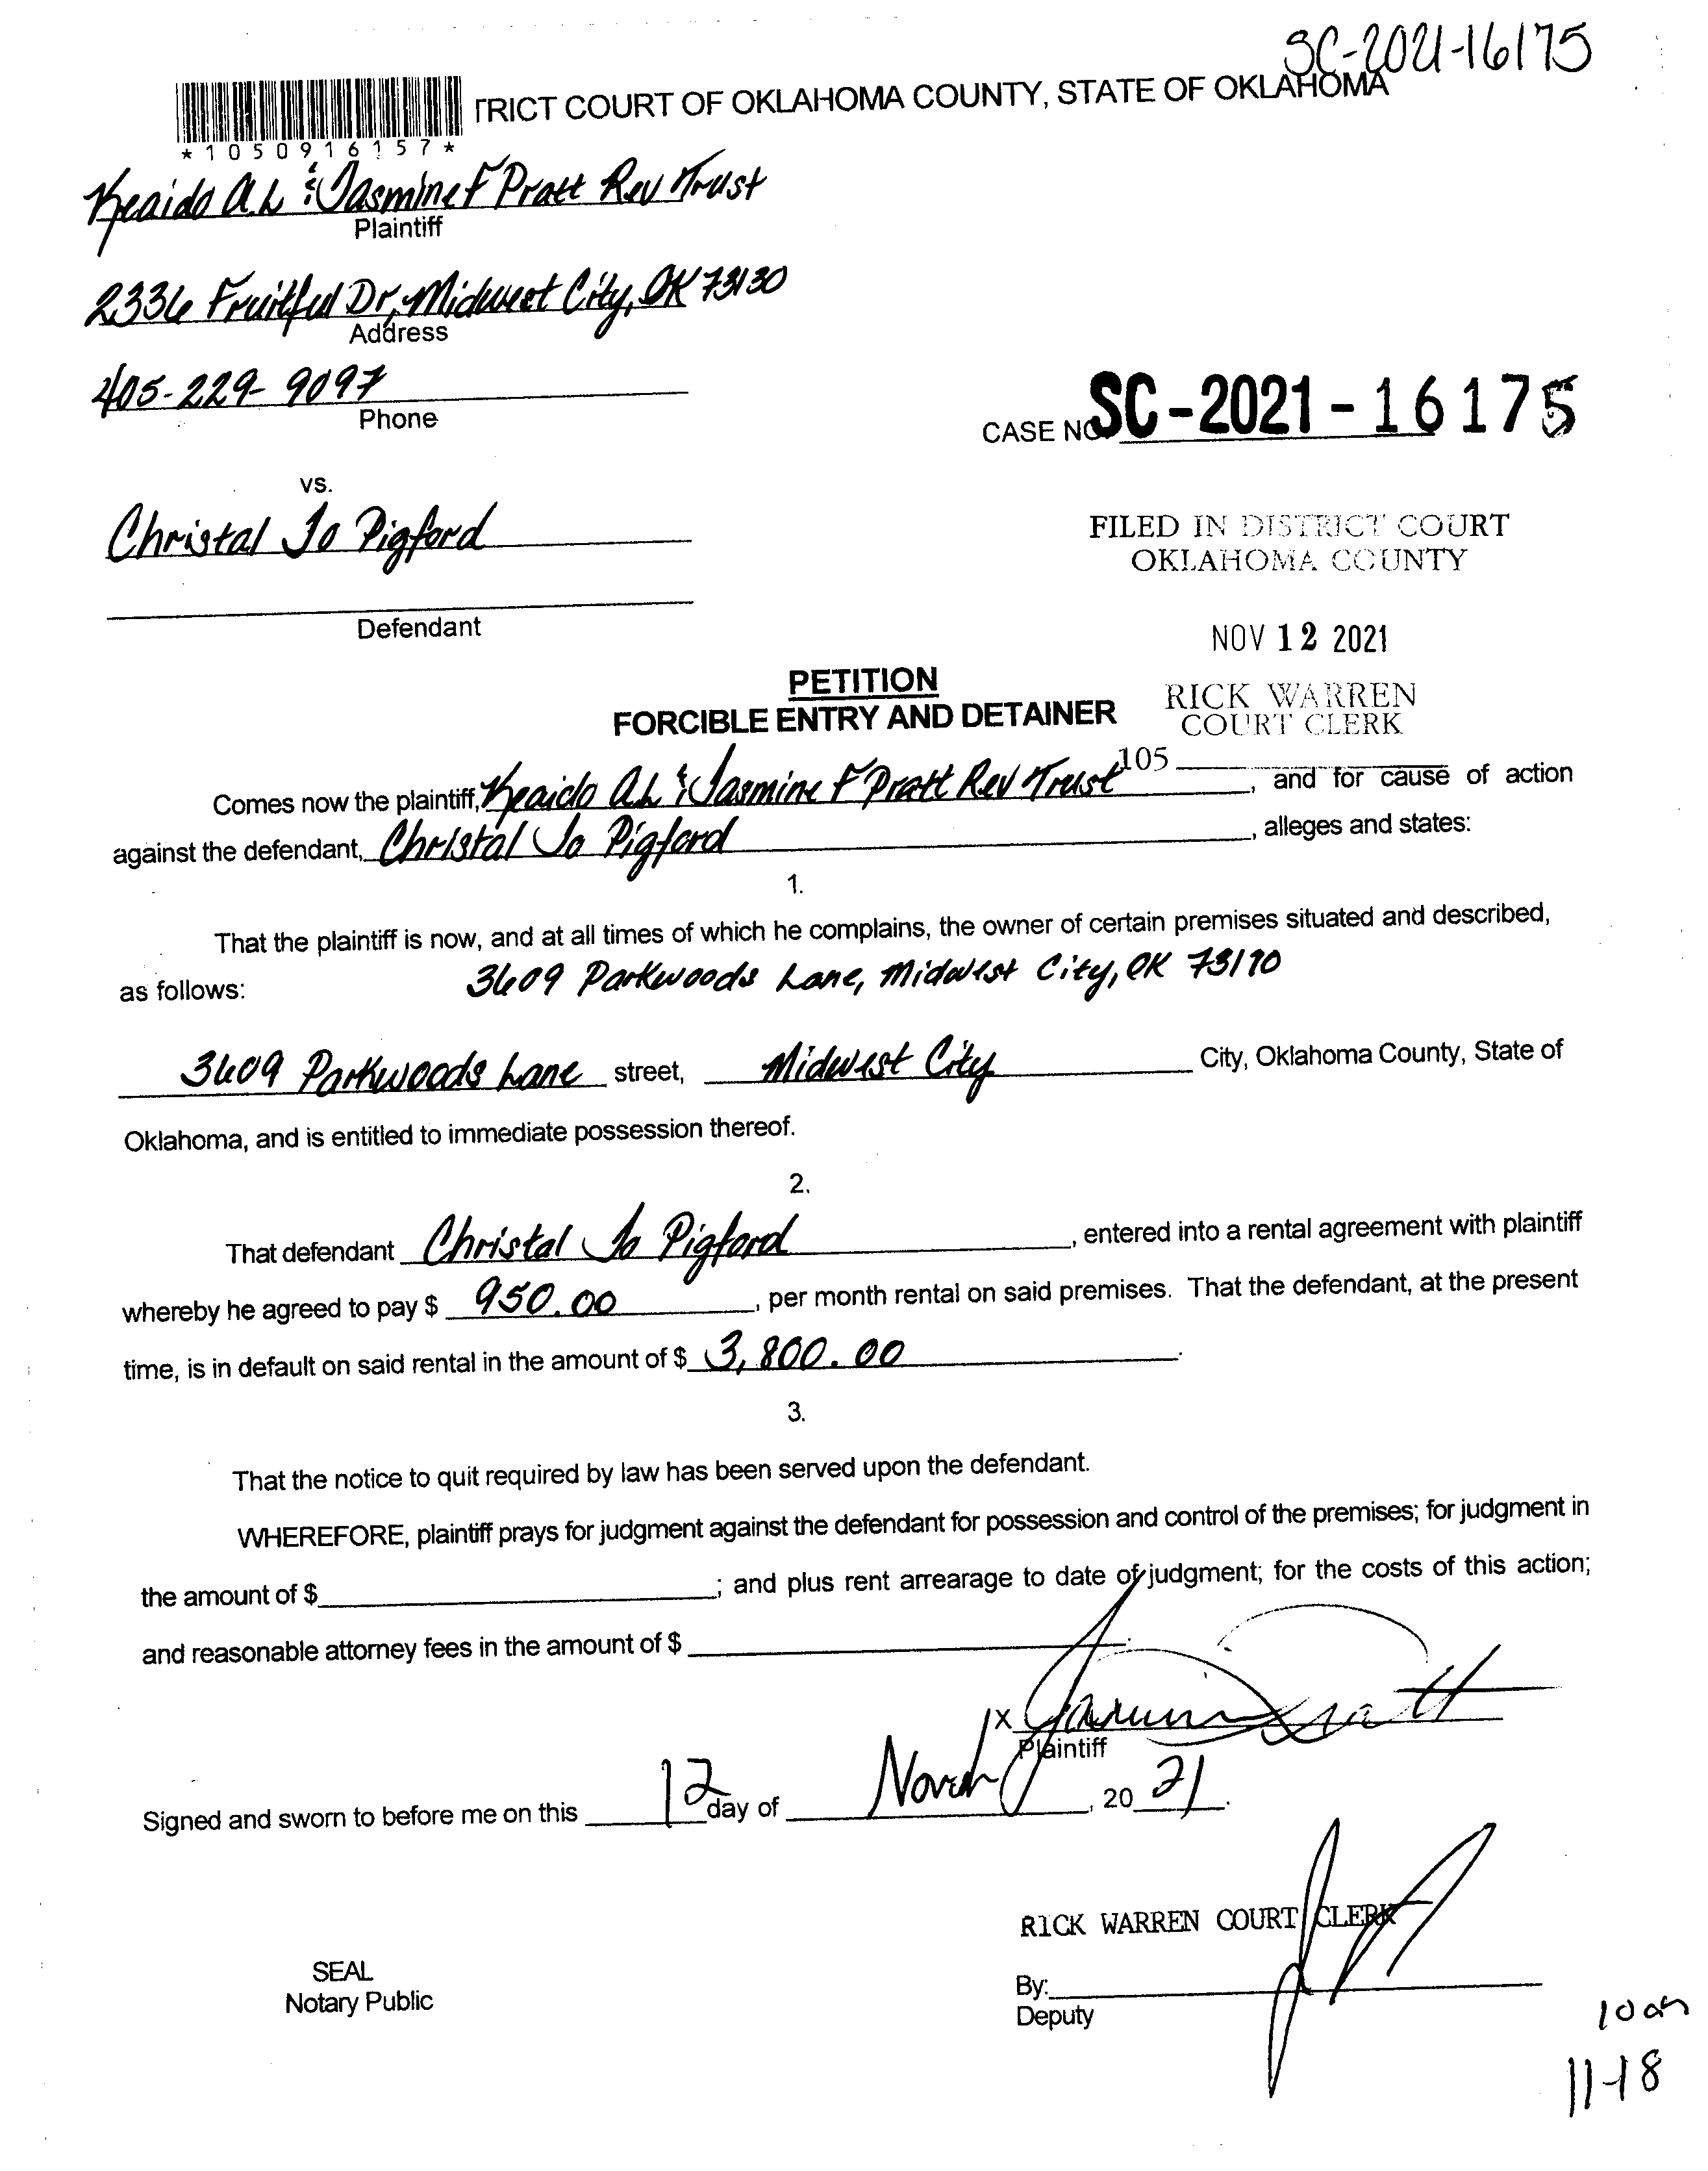 SC-2021-16175
TRICT COURT OF OKLAHOMA COUNTY, STATE OF OKLAHOMA
*1050916157*
Keaido A.L & Jasmine F Pratt Rev Trust
Plaintiff
2336 Fruitful Dr, Midwest City, OK 73130
Address
405-229-9097
Phone
CASE NO. SC-2021-16175
vs.
Christal Jo Pigford
FILED IN DISTRICT COURT
OKLAHOMA COUNTY
Defendant
NOV 12 2021
PETITION
FORCIBLE ENTRY AND DETAINER
RICK WARREN
COURT CLERK
105
Comes now the plaintiff, Keaido A.L & Jasmine F Pratt Rev Trust, and for cause of action
against the defendant, Christal Jo Pigford, alleges and states:
1.
That the plaintiff is now, and at all times of which he complains, the owner of certain premises situated and described,
as follows: 3609 Parkwoods Lane, Midwest City, OK 73110
3609 Parkwoods Lane street, Midwest City City, Oklahoma County, State of
Oklahoma, and is entitled to immediate possession thereof.
2.
That defendant Christal Jo Pigford, entered into a rental agreement with plaintiff
whereby he agreed to pay $ 950.00, per month rental on said premises. That the defendant, at the present
time, is in default on said rental in the amount of $ 3,800.00.
3.
That the notice to quit required by law has been served upon the defendant.
WHEREFORE, plaintiff prays for judgment against the defendant for possession and control of the premises; for judgment in
the amount of $ ; and plus rent arrearage to date of judgment; for the costs of this action;
and reasonable attorney fees in the amount of $ .
x Jasmine Pratt
Plaintiff
Signed and sworn to before me on this 12 day of Novem, 20 21.
RICK WARREN COURT CLERK
SEAL
Notary Public
By:
Deputy
10 am
11-18